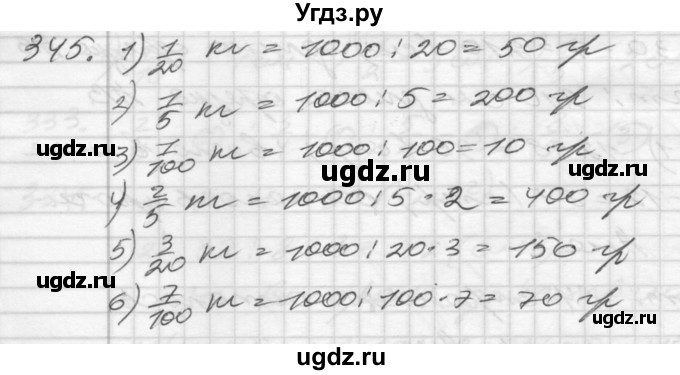 Угдз.ру
345. 1) 1/20 кг = 1000 : 20 = 50 гр
2) 1/5 кг = 1000 : 5 = 200 гр
ugdz.ru
ugdz.ru
3) 1/100 кг = 1000 : 100 = 10 гр
ugdz.ru
4) 2/5 кг = 1000 : 5 · 2 = 400 гр
5) 3/20 кг = 1000 : 20 · 3 = 150 гр
ugdz.ru
ugdz.ru
6) 7/100 кг = 1000 : 100 · 7 = 70 гр
ugdz.ru
ugdz.ru
ugdz.ru